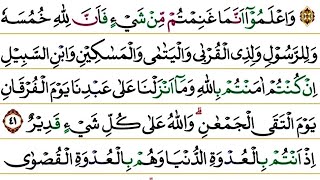 وَاعْلَمُوْٓا اَنَّمَا غَنِمْتُمْ مِّنْ شَيْءٍ فَاَنَّ لِلّٰهِ خُمُسَهٗ
وَلِلرَّسُوْلِ وَلِذِى الْقُرْبٰى وَالْيَتٰمٰى وَالْمَسٰكِيْنِ وَابْنِ السَّبِيْلِ
اِنْ كُنْتُمْ اٰمَنْتُمْ بِاللّٰهِ وَمَآ اَنْزَلْنَا عَلٰى عَبْدِنَا يَوْمَ الْفُرْقَانِ
يَوْمَ الْتَقَى الْجَمْعٰنِۗ وَاللّٰهُ عَلٰى كُلِّ شَيْءٍ قَدِيْرٌ ٤١
اِذْ اَنْتُمْ بِالْعُدْوَةِ الدُّنْيَا وَهُمْ بِالْعُدْوَةِ الْقُصْوٰى